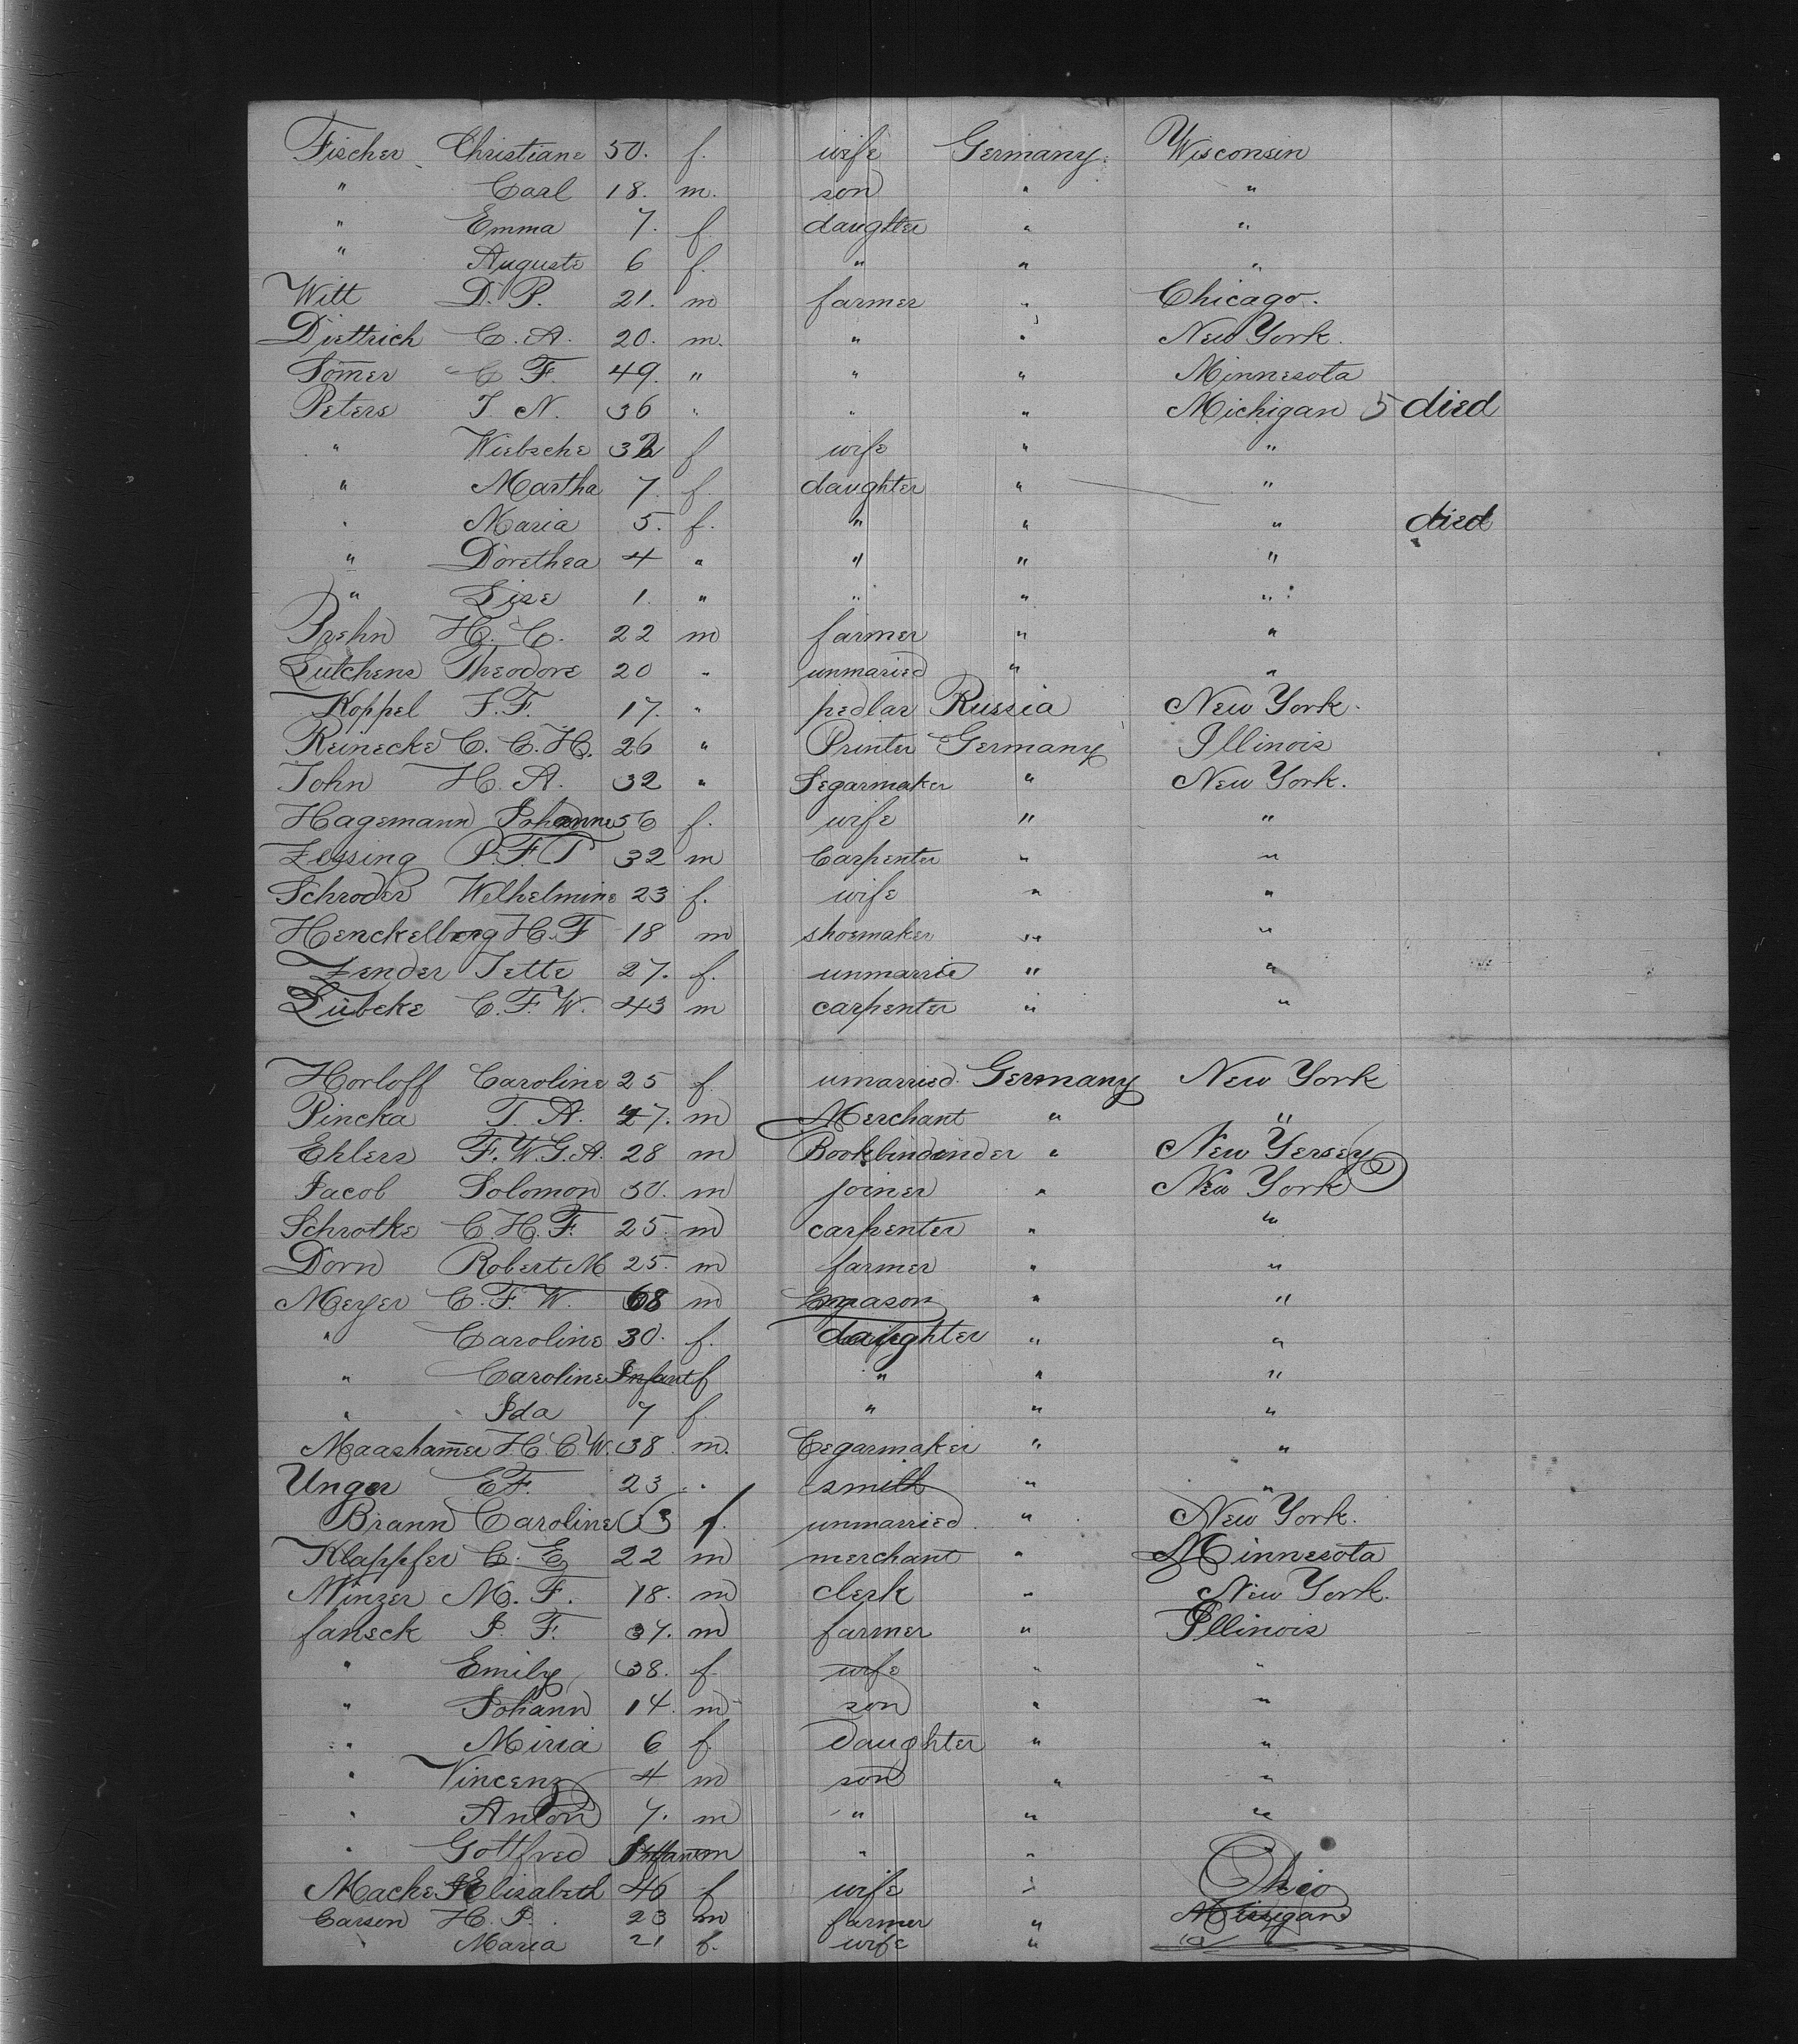 Fischer Christiane 50. f. wife Germany Wisconsin
" Carl 18. m. son " "
" Emma 7. f daughter " "
" Auguste 6 f. " " "
Witt D. P. 21. m farmer " Chicago.
Diettrich C. A. 20. m. " " New York.
Som̄er C F. 49. " " " Minnesota
Peters J. N. 36 " " " Michigan 5 died
" Wiebsche 32 f wife " "
" Martha 7. f. daughter " "
" Maria 5. f. " " " died
" Dorethea 4 " " " "
" Lise 1. " " " "
Prehn H. C. 22 m farmer " "
Lutchens Theodore 20 " unmaried " "
Koppel F. F. 17. " pedlar Russia New York.
Reinecke C. C. H. 26 " Printer Germany Illinois
John H. A. 32 " Segarmaker " New York.
Hagemann Johanne 56 f. wife " "
Lessing P. F. T 32 m Carpenter " "
Schroder Welhelmine 23 f. wife " "
Henckelberg H. F 18 m shoemaker " "
Zender Jette 27. f. unmarrie " "
Lübcke C. F. W. 43 m carpenter " "
Horloff Caroline 25 f. umarried. Germany New York
Pincka T. A. 47. m Merchant " "
Ehlers F. W. G. A. 28 m Bookbindinder " New Yersey
Jacob Solomon 30. m joiner " New York
Schrotke C. H. F. 25. m carpenter " "
Dorn Robert M 25. m farmer " "
Meyer C. F. W. 68 m mason " "
" Caroline 30. f. daughter " "
" Caroline Infant f " " "
" Ida 7 f. " " "
Maasham̄er H. C. W. 38. m. Cegarmaker " "
Unger E F. 23 " smith " "
Brann Caroline 63 f. unmarried " New York.
Klappfer C. E 22 m merchant " Minnesota
Minzer M. F. 18. m clerk " New York.
fanseck J. F. 37. m farmer " Illinois
" Emily 38. f. wife " "
" Johann 14. m son " "
" Miria 6 f. daughter " "
" Vincenz 4 m son " "
" Anton 7. m " " "
" Gottfred Infant m " " "
Macke Elizabeth 46 f wife " Ohio
Carsen H. P. 23 m farmer " Missigan
" Maria 21 f. wife " "